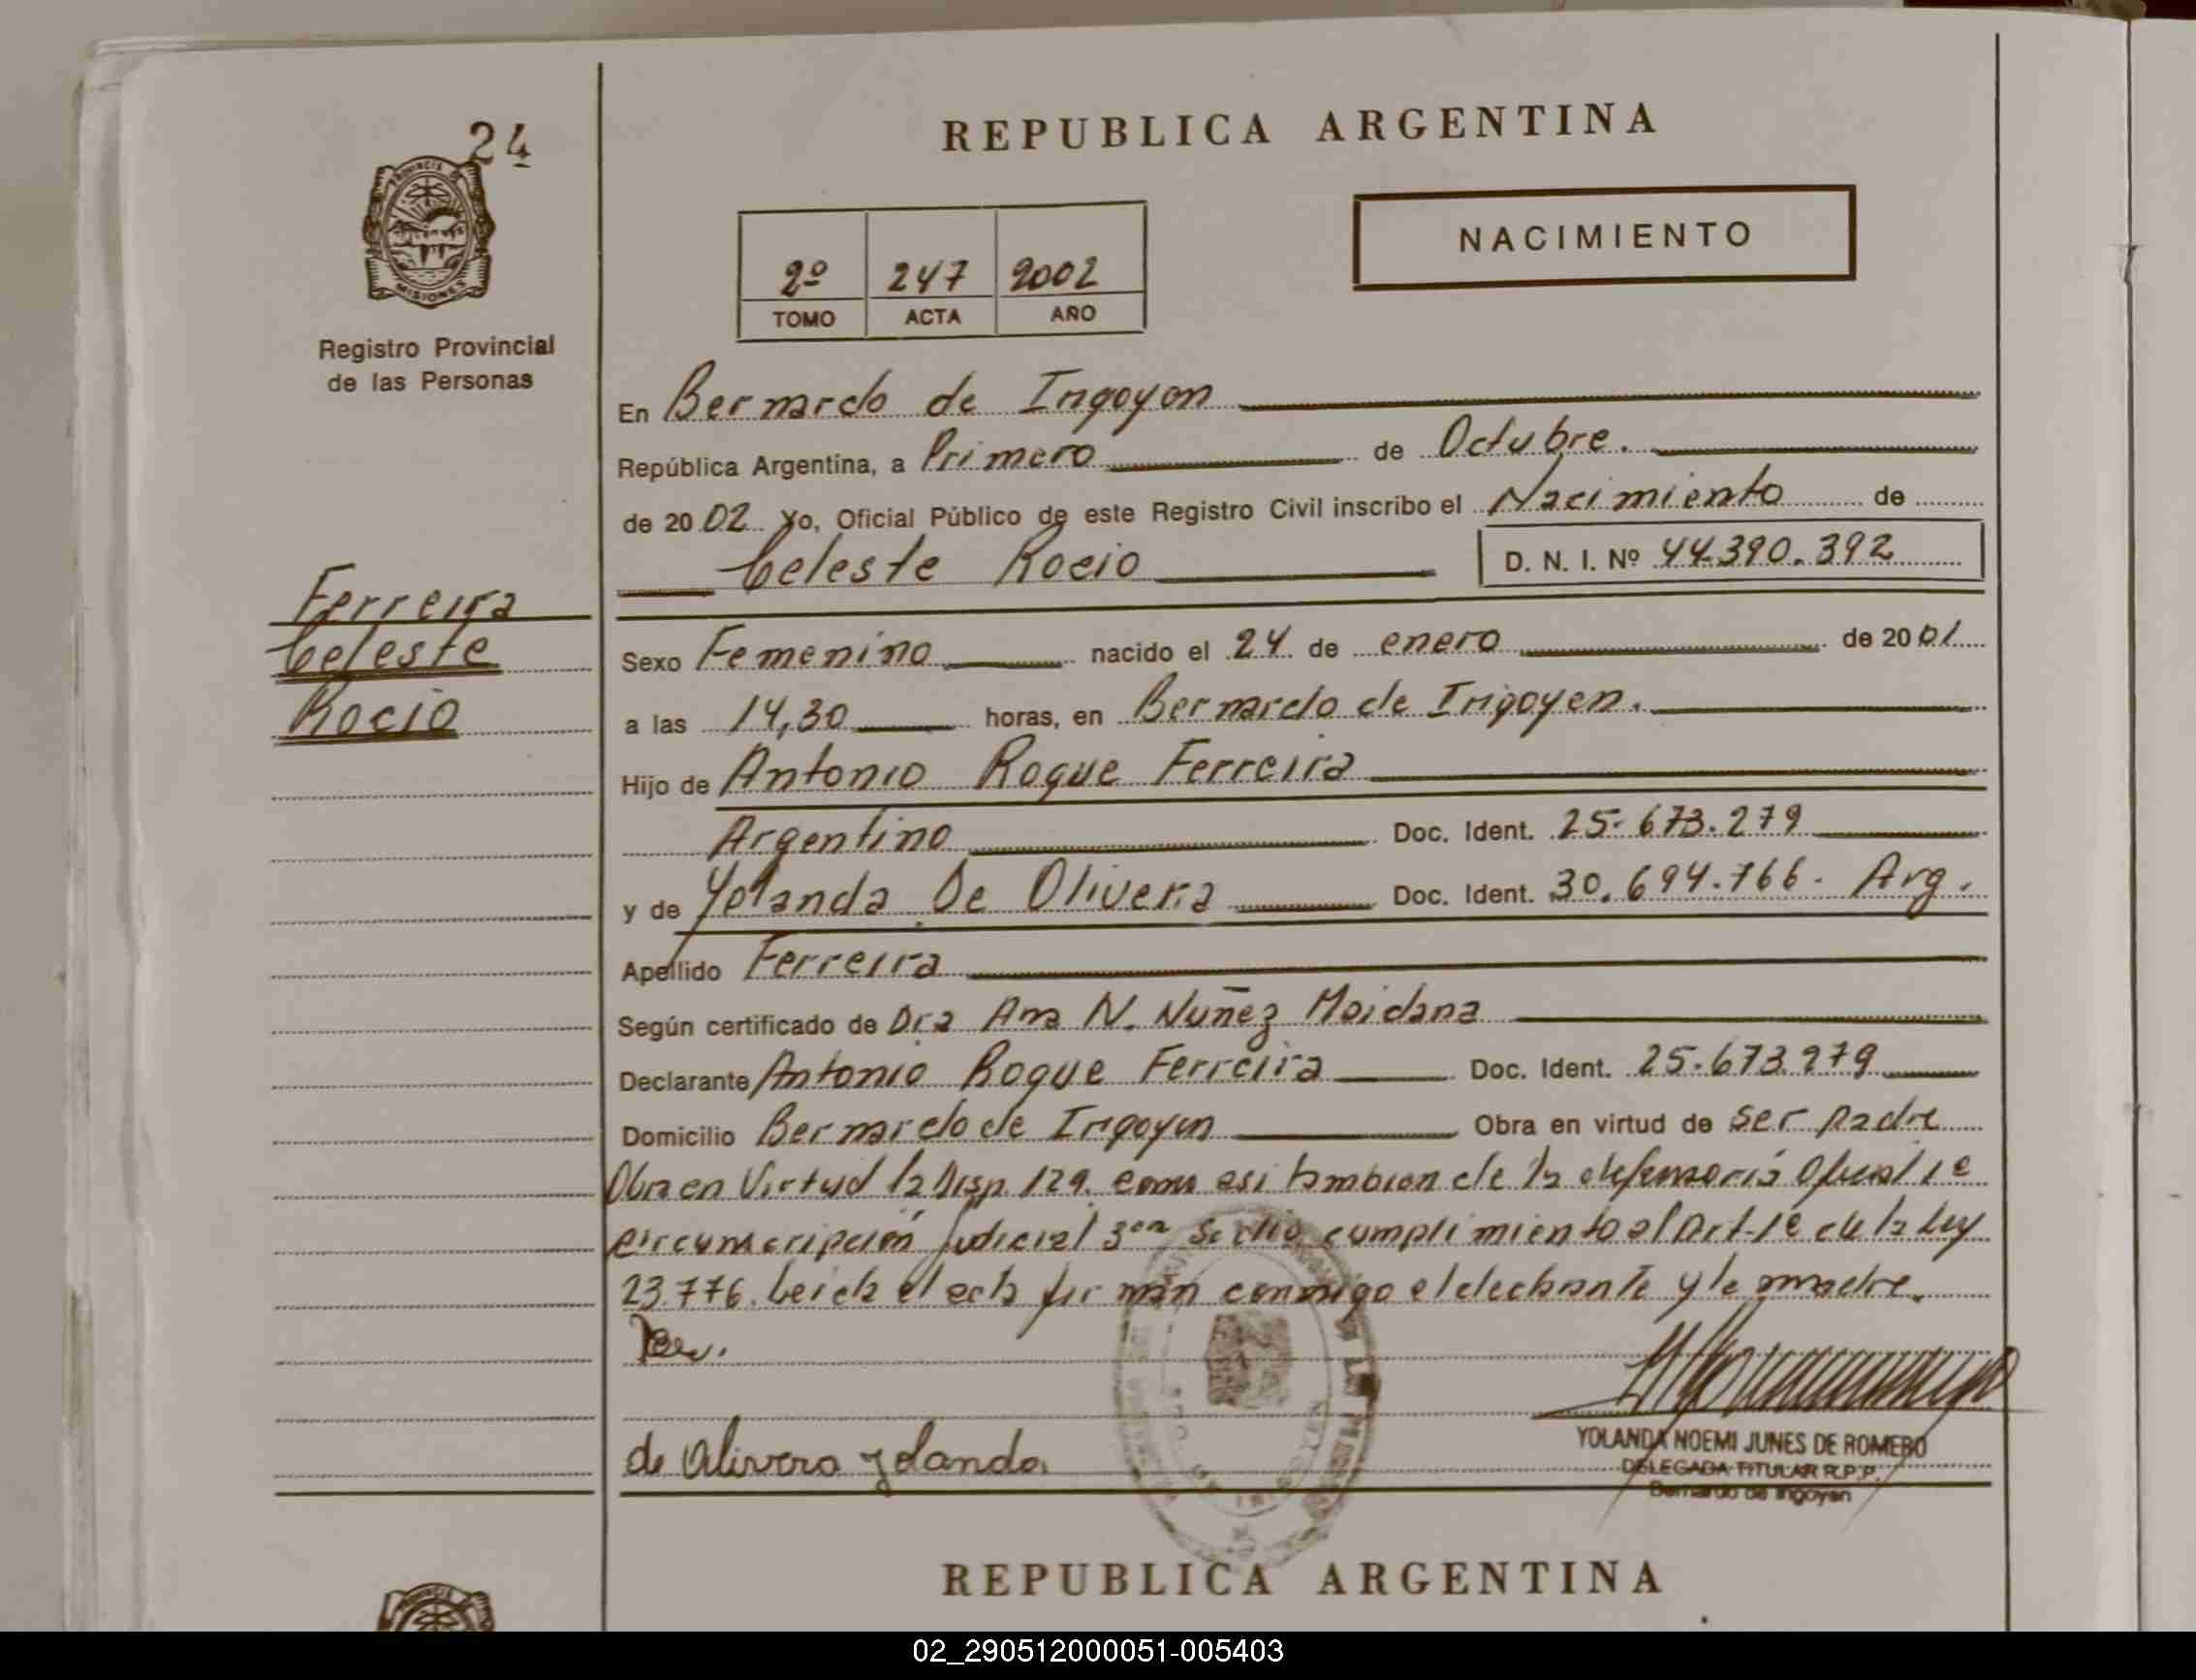 24
REPUBLICA ARGENTINA
PROVINCIA DE
MISIONES
NACIMIENTO
2º 247 2002
TOMO ACTA AÑO
Registro Provincial
de las Personas
En Bernardo de Irigoyen
República Argentina, a Primero de Octubre.
de 20 02 Yo, Oficial Público de este Registro Civil inscribo el Nacimiento de
Celeste Rocio D. N. I. Nº 44.390.392
Ferreira
Celeste
Rocio
Sexo Femenino nacido el 24 de enero de 20 01
a las 14,30 horas, en Bernardo de Irigoyen.
Hijo de Antonio Roque Ferreira
Argentino Doc. Ident. 25.673.279
y de Yolanda De Olivera Doc. Ident. 30.694.766. Arg.
Apellido Ferreira
Según certificado de Dra Ana N. Nuñez Maidana
Declarante Antonio Roque Ferreira Doc. Ident. 25.673.279
Domicilio Bernardo de Irigoyen Obra en virtud de ser padre
Obra en Virtud la Disp. 129. como asi tambien de la defensoria Oficial 1e
circunscripción judicial 3era Se dio cumplimiento al Art-1º de la Ley
23.776. Leida el acta firman conmigo el declarante y la madre.
de Olivera Yolanda
YOLANDA NOEMI JUNES DE ROMERO
DELEGADA TITULAR R.P.P.
Bernardo de Irigoyen
REPUBLICA ARGENTINA
02_290512000051-005403